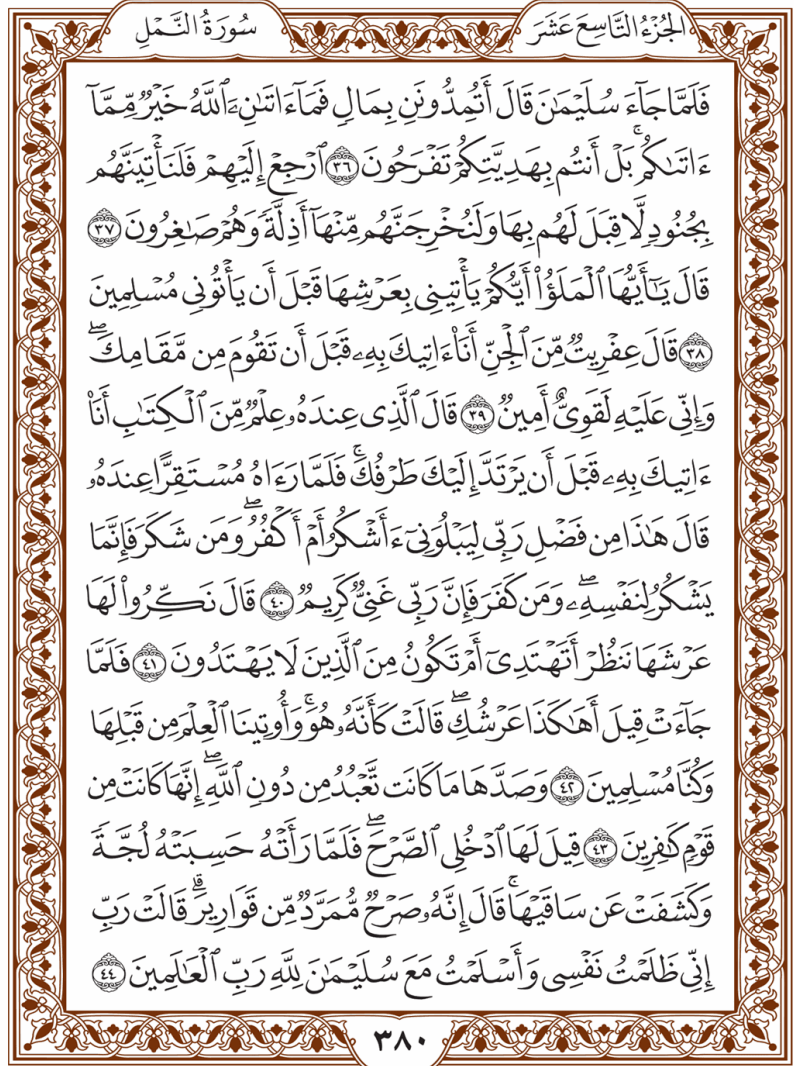 الجُزْءُ التَّاسِعَ عَشَرَ
سُورَةُ النَّمْلِ
فَلَمَّا جَآءَ سُلَيْمَٰنَ قَالَ أَتُمِدُّونَنِ بِمَالٍ فَمَآ ءَاتَىٰنِۦَ ٱللَّهُ خَيْرٌ مِّمَّآ
ءَاتَىٰكُمۚ بَلْ أَنتُم بِهَدِيَّتِكُمْ تَفْرَحُونَ ٣٦ ٱرْجِعْ إِلَيْهِمْ فَلَنَأْتِيَنَّهُم
بِجُنُودٍ لَّا قِبَلَ لَهُم بِهَا وَلَنُخْرِجَنَّهُم مِّنْهَآ أَذِلَّةً وَهُمْ صَٰغِرُونَ ٣٧
قَالَ يَٰٓأَيُّهَا ٱلْمَلَؤُا۟ أَيُّكُمْ يَأْتِينِى بِعَرْشِهَا قَبْلَ أَن يَأْتُونِى مُسْلِمِينَ
٣٨ قَالَ عِفْرِيتٌ مِّنَ ٱلْجِنِّ أَنَا۠ ءَاتِيكَ بِهِۦ قَبْلَ أَن تَقُومَ مِن مَّقَامِكَۖ
وَإِنِّى عَلَيْهِ لَقَوِىٌّ أَمِينٌ ٣٩ قَالَ ٱلَّذِى عِندَهُۥ عِلْمٌ مِّنَ ٱلْكِتَٰبِ أَنَا۠
ءَاتِيكَ بِهِۦ قَبْلَ أَن يَرْتَدَّ إِلَيْكَ طَرْفُكَۚ فَلَمَّا رَءَاهُ مُسْتَقِرًّا عِندَهُۥ
قَالَ هَٰذَا مِن فَضْلِ رَبِّى لِيَبْلُوَنِىٓ ءَأَشْكُرُ أَمْ أَكْفُرُۖ وَمَن شَكَرَ فَإِنَّمَا
يَشْكُرُ لِنَفْسِهِۦۖ وَمَن كَفَرَ فَإِنَّ رَبِّى غَنِىٌّ كَرِيمٌ ٤٠ قَالَ نَكِّرُوا۟ لَهَا
عَرْشَهَا نَنظُرْ أَتَهْتَدِىٓ أَمْ تَكُونُ مِنَ ٱلَّذِينَ لَا يَهْتَدُونَ ٤١ فَلَمَّا
جَآءَتْ قِيلَ أَهَٰكَذَا عَرْشُكِۖ قَالَتْ كَأَنَّهُۥ هُوَۚ وَأُوتِينَا ٱلْعِلْمَ مِن قَبْلِهَا
وَكُنَّا مُسْلِمِينَ ٤٢ وَصَدَّهَا مَا كَانَت تَّعْبُدُ مِن دُونِ ٱللَّهِۖ إِنَّهَا كَانَتْ مِن
قَوْمٍ كَٰفِرِينَ ٤٣ قِيلَ لَهَا ٱدْخُلِى ٱلصَّرْحَۖ فَلَمَّا رَأَتْهُ حَسِبَتْهُ لُجَّةً
وَكَشَفَتْ عَن سَاقَيْهَاۚ قَالَ إِنَّهُۥ صَرْحٌ مُّمَرَّدٌ مِّن قَوَارِيرَۗ قَالَتْ رَبِّ
إِنِّى ظَلَمْتُ نَفْسِى وَأَسْلَمْتُ مَعَ سُلَيْمَٰنَ لِلَّهِ رَبِّ ٱلْعَٰلَمِينَ ٤٤
٣٨٠